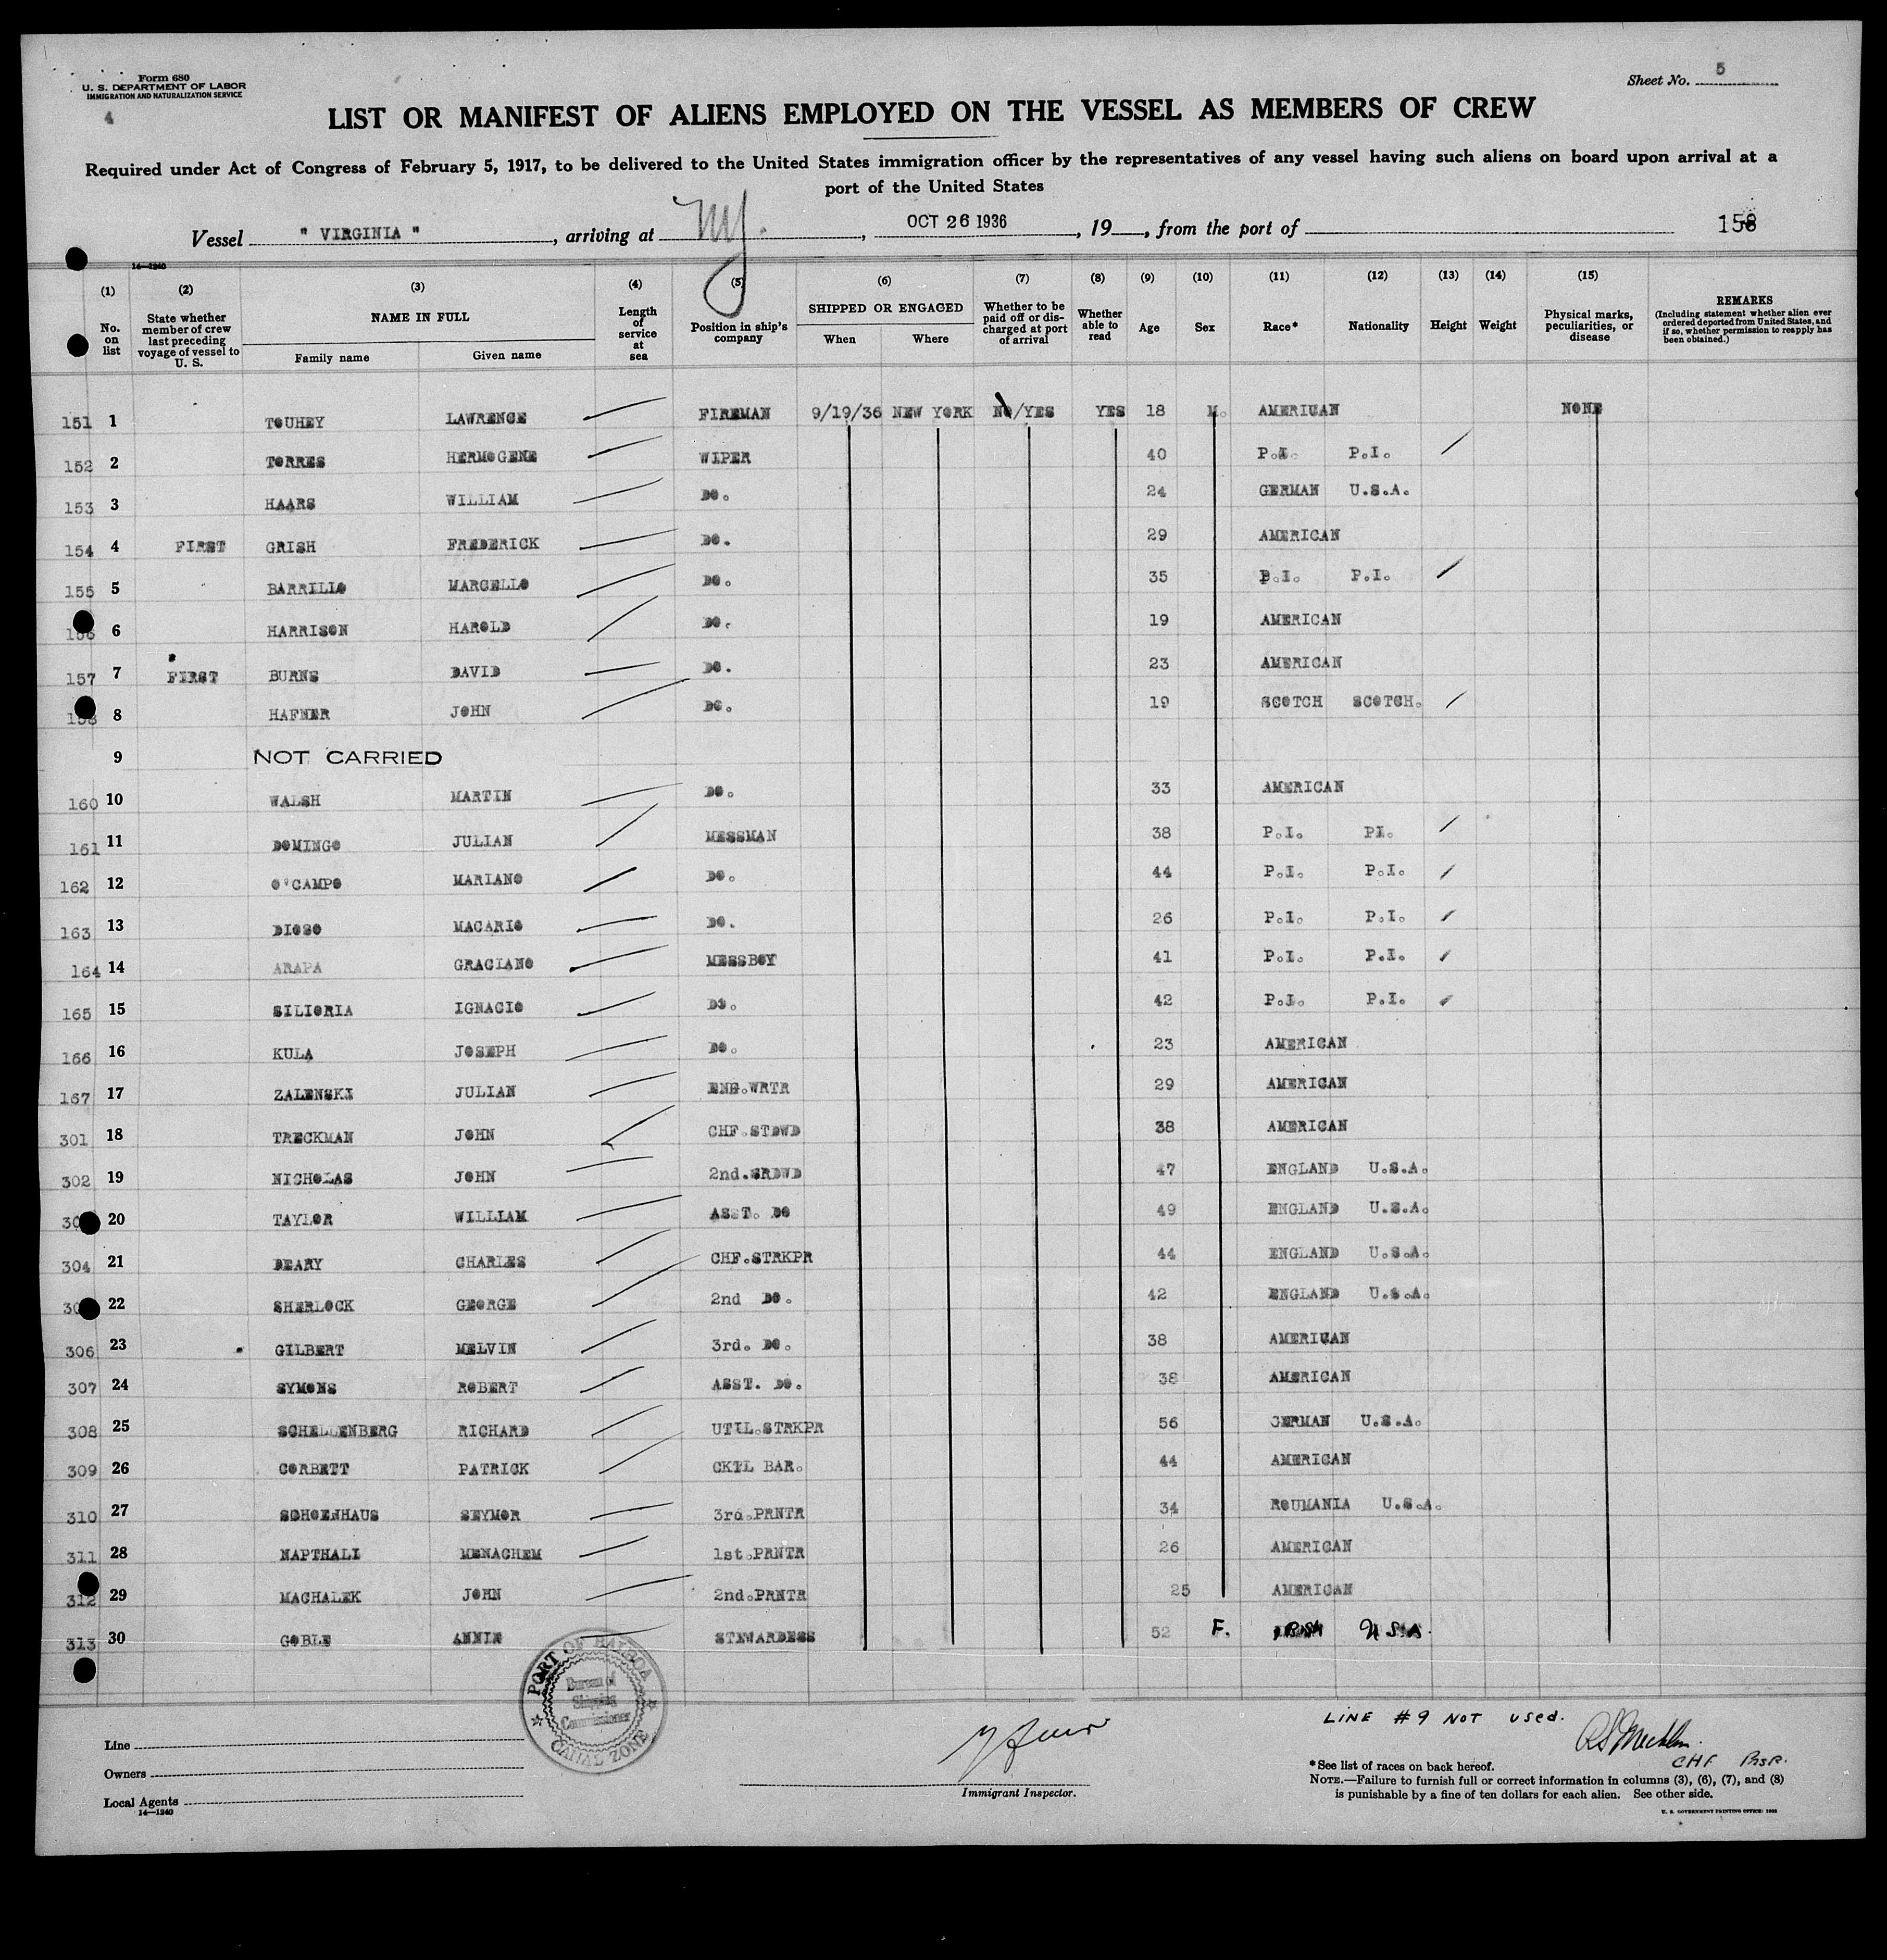 Form 680
U. S. DEPARTMENT OF LABOR
IMMIGRATION AND NATURALIZATION SERVICE
4
Sheet No. 5
LIST OR MANIFEST OF ALIENS EMPLOYED ON THE VESSEL AS MEMBERS OF CREW
Required under Act of Congress of February 5, 1917, to be delivered to the United States immigration officer by the representatives of any vessel having such aliens on board upon arrival at a
port of the United States
Vessel " VIRGINIA " , arriving at NY. , OCT 26 1936 , 19 , from the port of 158
14—1240
(1) No. on list
(2) State whether member of crew last preceding voyage of vessel to U. S.
(3) NAME IN FULL Family name Given name
(4) Length of service at sea
(5) Position in ship's company
(6) SHIPPED OR ENGAGED When Where
(7) Whether to be paid off or discharged at port of arrival
(8) Whether able to read
(9) Age
(10) Sex
(11) Race*
(12) Nationality
(13) Height
(14) Weight
(15) Physical marks, peculiarities, or disease
REMARKS (Including statement whether alien ever ordered deported from United States, and if so, whether permission to reapply has been obtained.)
151 1 TOUHEY LAWRENCE FIREMAN 9/19/36 NEW YORK NO/YES YES 18 M. AMERICAN NONE
152 2 TORRES HERMOGENE WIPER 40 P.I. P.I.
153 3 HAARS WILLIAM DO. 24 GERMAN U.S.A.
154 4 FIRST GRISH FREDERICK DO. 29 AMERICAN
155 5 BARRILIO MARCELLO DO. 35 P.I. P.I.
156 6 HARRISON HAROLD DO. 19 AMERICAN
157 7 FIRST BURNS DAVID DO. 23 AMERICAN
158 8 HAFNER JOHN DO. 19 SCOTCH SCOTCH.
9 NOT CARRIED
160 10 WALSH MARTIN DO. 33 AMERICAN
161 11 DOMINGO JULIAN MESSMAN 38 P.I. PI.
162 12 O'CAMPO MARIANO DO. 44 P.I. P.I.
163 13 DIOSO MACARIO DO. 26 P.I. P.I.
164 14 ARAPA GRACIANO MESSBOY 41 P.I. P.I.
165 15 SILIORIA IGNACIO DO. 42 P.I. P.I.
166 16 KULA JOSEPH DO. 23 AMERICAN
167 17 ZALENSKI JULIAN ENG.WRTR 29 AMERICAN
301 18 TRECKMAN JOHN CHF.STDWD 38 AMERICAN
302 19 NICHOLAS JOHN 2nd.SRDWD 47 ENGLAND U.S.A.
30 20 TAYLOR WILLIAM ASST. DO 49 ENGLAND U.S.A.
304 21 DEARY CHARLES CHF.STRKPR 44 ENGLAND U.S.A.
30 22 SHERLOCK GEORGE 2nd DO. 42 ENGLAND U.S.A.
306 23 GILBERT MELVIN 3rd. DO. 38 AMERICAN
307 24 SYMONS ROBERT ASST. DO. 38 AMERICAN
308 25 SCHELLENBERG RICHARD UTIL.STRKPR 56 GERMAN U.S.A.
309 26 CORBETT PATRICK CKTL BAR. 44 AMERICAN
310 27 SCHOENHAUS SEYMOR 3rd.PRNTR 34 ROUMANIA U.S.A.
311 28 NAPTHALI MENACHEM 1st.PRNTR 26 AMERICAN
312 29 MACHALEK JOHN 2nd.PRNTR 25 AMERICAN
313 30 GOBLE ANNIE STEWARDESS 52 F. U.S.A.
PORT OF BALBOA
Bureau of
Shipping
Commissioner
CANAL ZONE
LINE #9 NOT used.
CHF Prsr.
Line
Owners
Local Agents
14—1240
Immigrant Inspector.
*See list of races on back hereof.
NOTE.—Failure to furnish full or correct information in columns (3), (6), (7), and (8)
is punishable by a fine of ten dollars for each alien. See other side.